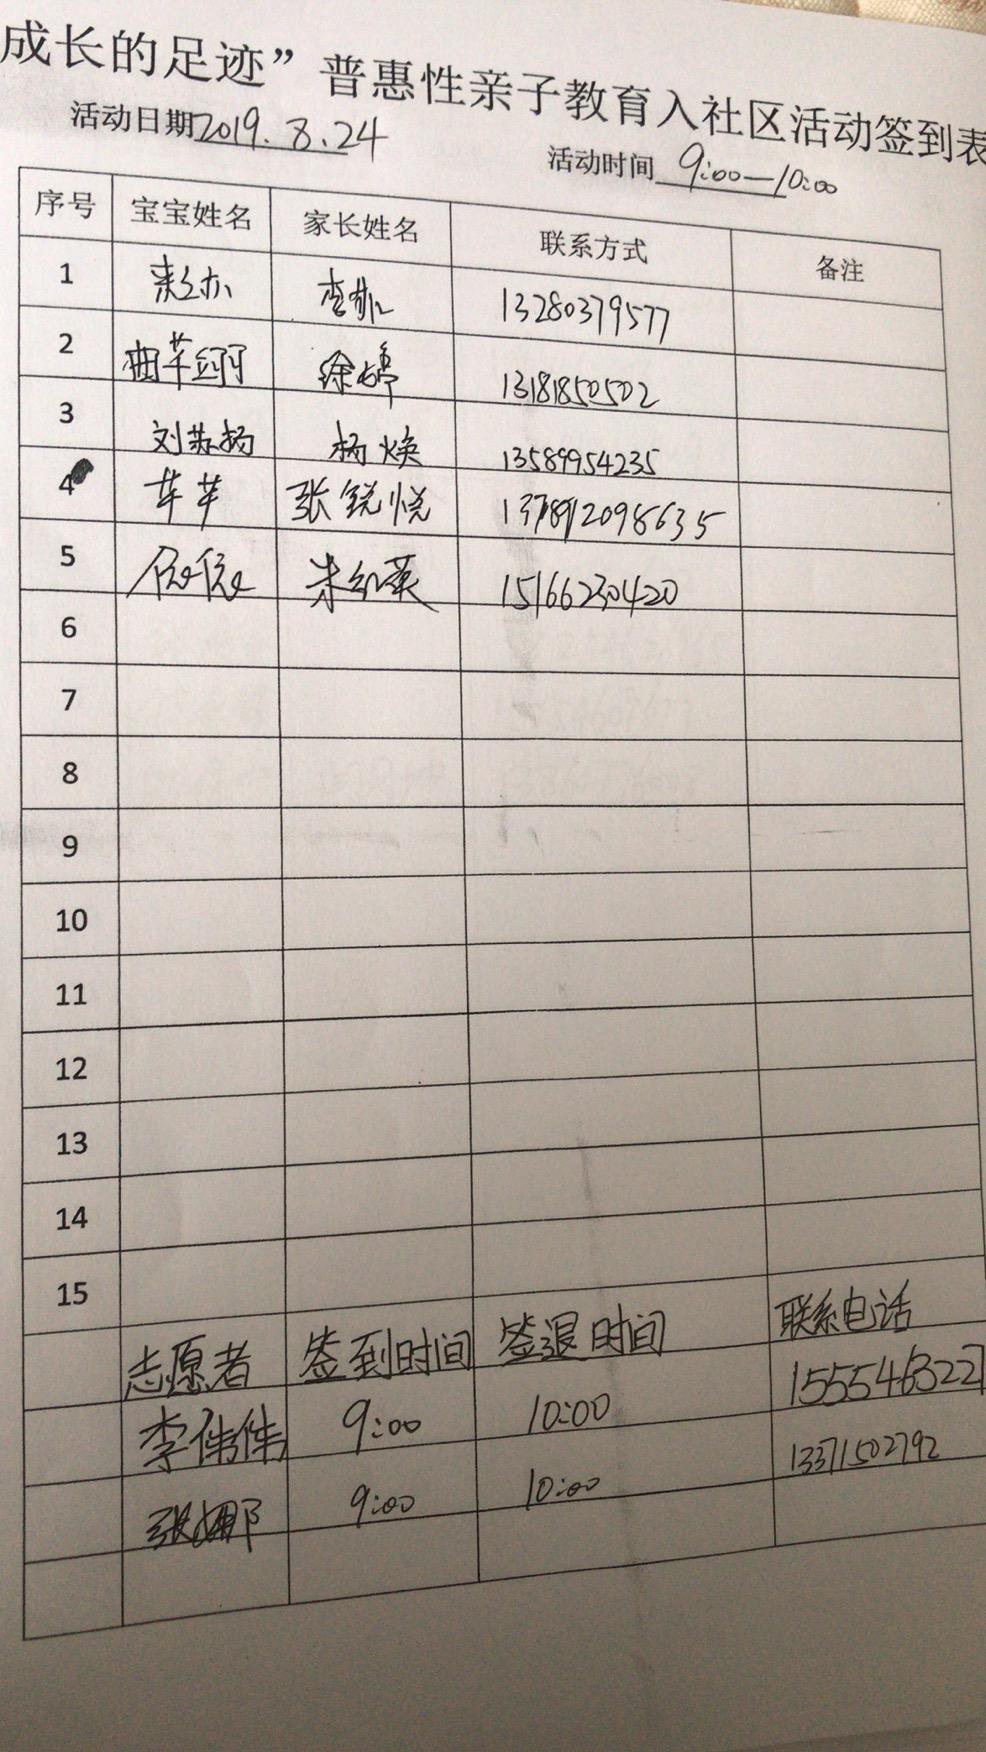 成长的足迹”普惠性亲子教育入社区活动签到表
活动日期2019.8.24
活动时间 9:00—10:00
序号 宝宝姓名 家长姓名 联系方式 备注
1 13280379577
2 徐婷 13181850502
3 刘苏扬 杨焕 13589954235
4 芊芊 张锐悦
5 朱红英 15166230420
6
7
8
9
10
11
12
13
14
15
志愿者 签到时间 签退时间 联系电话
李伟伟 9:00 10:00 15554632271
张娜 9:00 10:00 13371502792